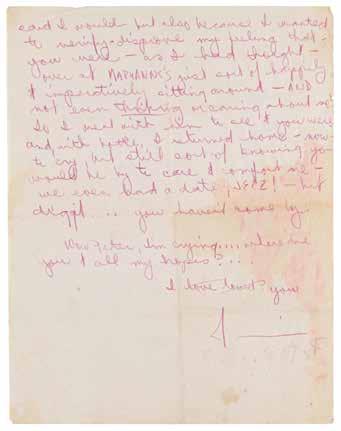 said I would - but also because I wanted
to verify-disprove my feeling that
you were - as I had thought -
over at MARYANN'S just sort of happily
& imperatively sitting around - AND
not even thinking or caring about me
So I went with him to see & you were
and with I returned home - now
to cry, but still sort of knowing you
would be by to care & comfort me -
we even had a date, JEEZ! - but
you haven't come by
I'm crying.... where are
you & all my hopes?...
I love you
J